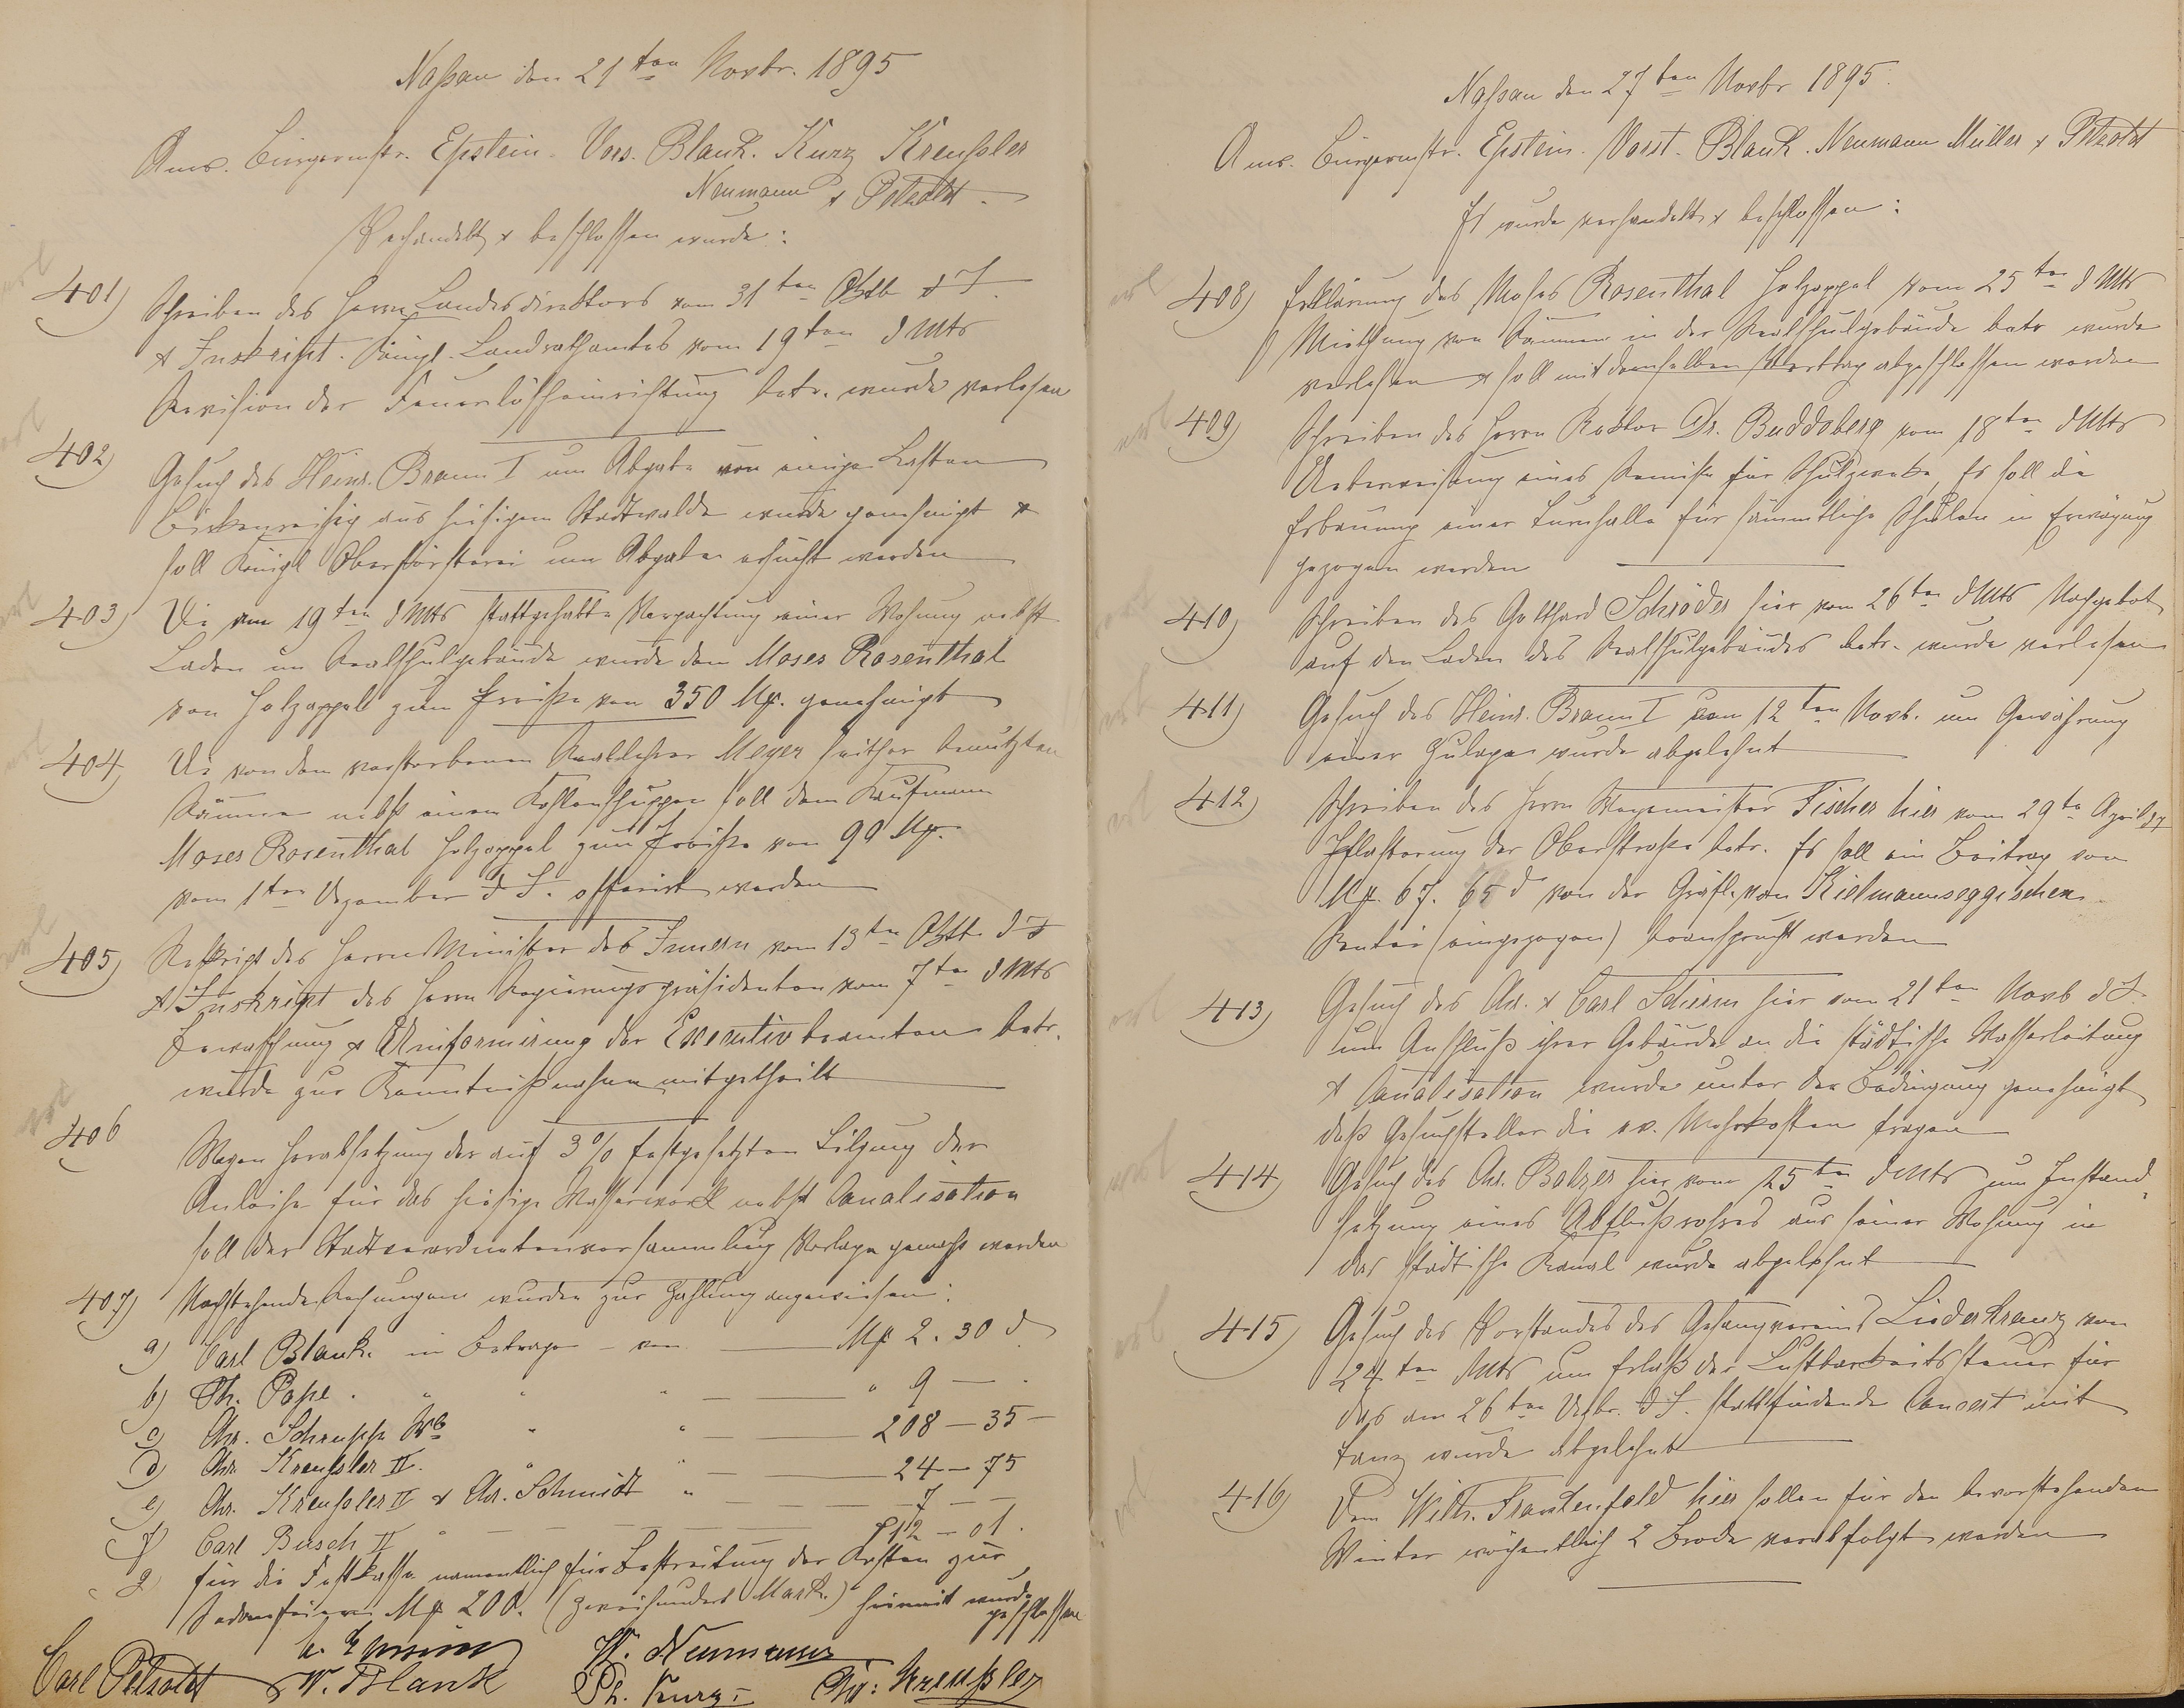 Naßau den 21ten Novbr. 1895
Anw. Bürgermstr. Epstein. Vors. Blank. Kurz Kreußler
Neumann & Petzoldt
Verhandelt & beschlossen wurde:
401) Schreiben des Herrn Landesdirektors vom 31ten Oktb d J.
& Inskript. Königl. Landrathamtes vom 19ten d Mts
Revision der Feuerlöscheinrichtung betr. wurde verlesen
402) Gesuch des Heinr. Braun I um Abgabe von einige Lasten
Birkenreisig aus hiesigem Stadtwalde wurde genehmigt &
soll Königl Oberförsterei um Abgabe ersucht werden
403) Die am 19ten d Mts stattgehabte Verpachtung einer Wohnung nebst
Laden im Realschulgebäude wurde dem Moses Rosenthal
von Holzappel zum Preiße von 350 Mk. genehmigt
404) Die von dem verstorbenen Reallehrer Meyer seither benutzten
Räume nebst einen Kohlenschuppen soll dem Kaufmann
Moses Rosenthal Holzappel zum Preiße von 90 Mk.
vom 1ten Dezember d J. offerirt werden
405) Reskript des Herrn Minister des Innern vom 13ten Oktb. d J
& Inskript des Herrn Regierungspräsidenten vom 7ten d Mts
Bewaffnung & Uniformierung der Executivbeamten betr.
wurde zur Kenntnißnahme mitgetheilt
406 Wegen Herabsetzung der auf 3% festgesetzten Tilgung der
Anleihe für das hiesige Wasserwerk nebst Canalisation
soll der Stadtverordnetenversammlung Vorlage gemacht werden
407) Nachstehende Rechnungen wurden zur Zahlung angewiesen:
a) Carl Blank. im Betrage - von — Mk 2. 30 d
b) Th. Pape. " " " — " 9 —
c) Chr. Schrupp We " " — 208 — 35 —
d) Chr. Kreußler II. " " — 24 — 75
e) Chr. Kreußler II & Chr. Schmidt " — 7 —
f) Carl Busch II " — 112 — 01.
g) für die Festkasse namentlich für Bestreitung der Kosten zur
Sedanfeier Mk 200. (zweihundert Mark.) hiermit wurde
geschlossen
Carl Petzoldt W. Blank W. Neumann
Ph. Kurz Chr: Kreußler
Naßau den 27ten Novbr 1895.
Anw. Bürgermstr. Epstein. Vorst. Blank. Neumann Müller & Petzoldt
Es wurde verhandelt & beschlossen:
408) Erklärung des Moses Rosenthal Holzappel vom 25ten d Mts
Miethung von Räumen in der Realschulgebäude betr wurde
verlesen & soll mit demselben Vertrag abgeschlossen werden
409) Schreiben des Herrn Rektor Dr. Buddeberg vom 18ten d Mts
Ueberweisung eines Remise für Schulzwecke, Es soll die
Erbauung einer Turnhalle für sämmtliche Schulen in Erwägung
gezogen werden
410) Schreiben des Gotthard Schröder hier vom 26ten d Mts Nachgebot
auf den Laden des Realschulgebäudes betr. wurde verlesen
411) Gesuch des Heinr. Braun I vom 12ten Novb. um Gewährung
einer Zulage wurde abgelehnt
412) Schreiben des Herrn Wegemeister Fischer hier vom 29te April d J
Pflasterung der Oberstraße betr. Es soll ein Beitrag von
Mk. 67. 65 d von der Gräfl. von Kielmannseggischen
Rentei (eingezogen) beansprucht werden
413) Gesuch des Chr. & Carl Schirm hier vom 21ten Novb d J.
um Anschluß ihrer Gebäude an die städtische Wasserleitung
& Canalisation wurde unter der Bedingung genehmigt
daß Gesuchsteller die ev. Mehrkosten tragen
414) Gesuch des Chr. Balzer hier vom 25ten d Mts um Instand„
setzung eines Abflußrohres aus seiner Wohnung in
der städtische Kanal wurde abgelehnt
415) Gesuch des Vorstandes des Gesangvereins Liederkranz vom
24ten Mts um Erlaß der Lustbarkeitssteuer für
das am 26ten Dezbr. d J. stattfindende Concert mit
Tanz wurde abgelehnt
416) Dem Wilh. Trautenfeld hier sollen für den bevorstehenden
Winter wöchentlich 2 Brode verabfolgt werden